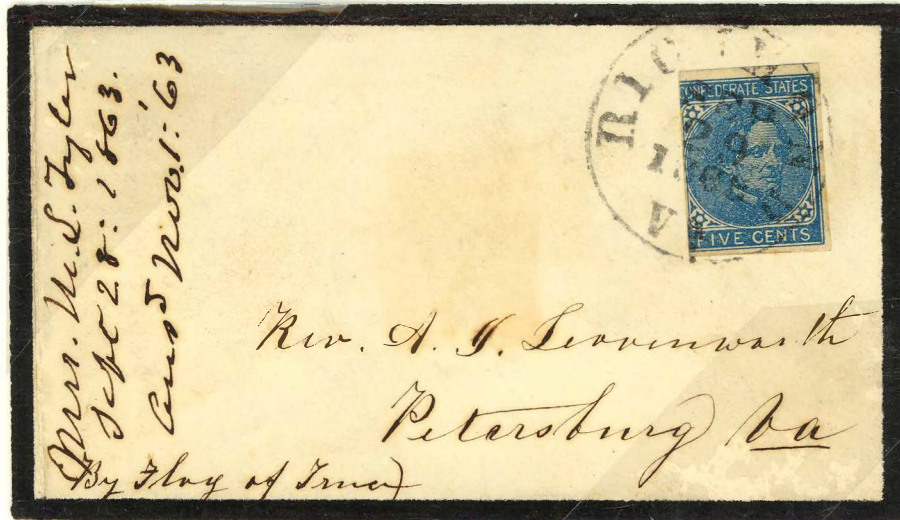 Mrs. M. L. Tyler
Sept 28: 1863.
Ansd Nov. 1: '63
RICHMOND
VA
CONFEDERATE STATES
FIVE CENTS
Rev. A. J. Leavenworth
Petersburg Va
By Flag of Truce